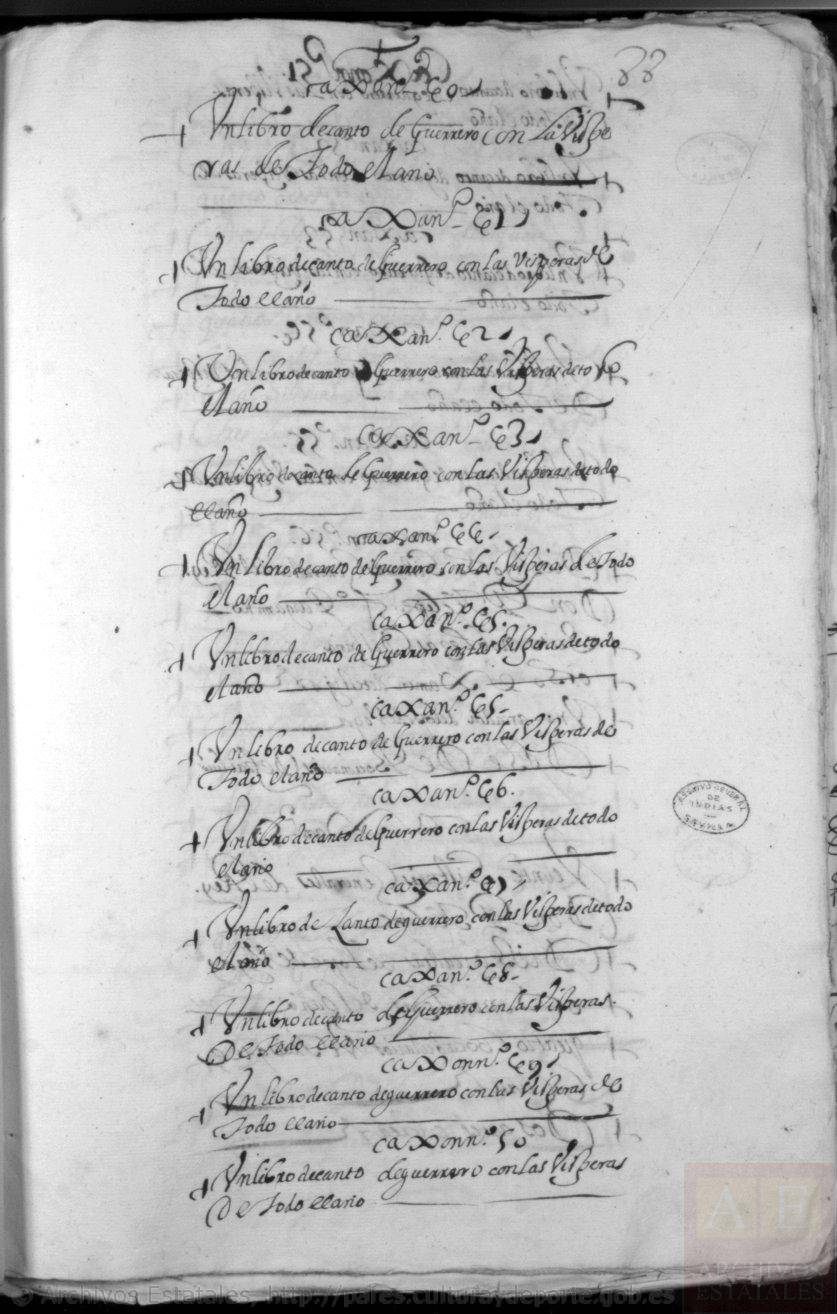 88
caxan.º 40
Vn libro de canto de Guerrero con la Vispe
ras de Todo el ano
caxan.º 41
Vn libro de canto de Guerrero con las Visperas de
Todo el año
caxan.º 42
Vn libro de canto Guerrero con las Visperas de to do
el año
caxan.º 43
Vn libro de canto de Guerrero con las Visperas de todo
el año
caxan.º 44
Vn libro de canto de Guerrero con las Visperas de Todo
el año
caxan.º 45
Vn libro de canto de Guerrero con las Visperas de todo
el año
caxan.º 45
Vn libro de canto de Guerrero con las Visperas de
Todo el año
caxan.º 46
Vn libro de canto de Guerrero con las Visperas de todo
el año
caxan.º 47
Vn libro de Canto de guerrero con las Visperas de todo
el año
caxan.º 48
Vn libro de canto de Guerrero con las Visperas
De Todo el año
caxonn.º 49
Vn libro de canto de guerrero con las Visperas de
Todo el año
caxonn.º 50
Vn libro de canto de guerrero con las Visperas
De Todo el año
ARCHIVO GENERAL
DE
INDIAS
SEVILLA
AE
ARCHIVOS
ESTATALES
© Archivos Estatales, http://pares.culturaydeporte.gob.es